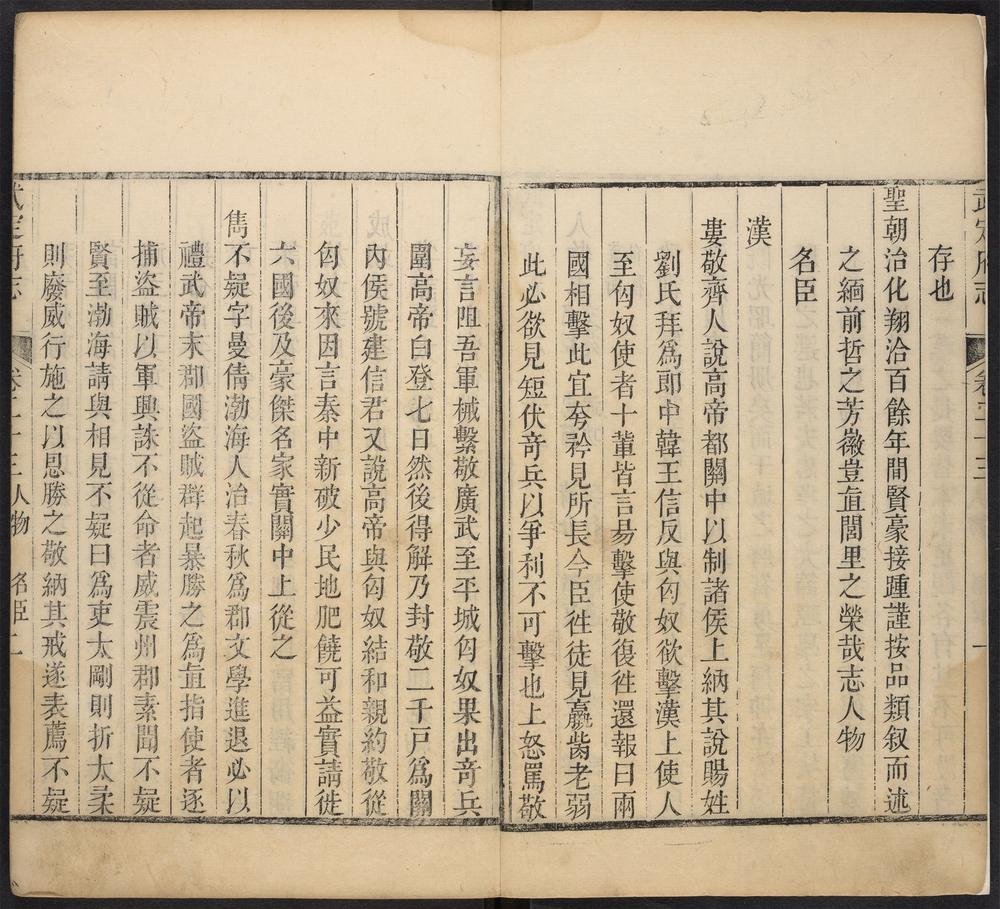 武定府志 卷二十三 一
存也
聖朝治化翔洽百餘年間賢豪接踵謹按品類叙而述
之緬前哲之芳徽豈直閭里之榮哉志人物
名臣
漢
婁敬齊人說高帝都關中以制諸侯上納其說賜姓
劉氏拜為郎中韓王信反與匈奴欲擊漢上使人
至匈奴使者十輩皆言易擊使敬復徃還報曰兩
國相擊此宜夸矜見所長今臣徃徒見羸胔老弱
此必欲見短伏竒兵以爭利不可擊也上怒罵敬
妄言阻吾軍械繫敬廣武至平城匈奴果出竒兵
圍高帝白登七日然後得解乃封敬二千戸為關
內侯號建信君又說高帝與匈奴結和親約敬從
匈奴來因言秦中新破少民地肥饒可益實請徙
六國後及豪傑名家實關中上從之
雋不疑字曼倩渤海人治春秋為郡文學進退必以
禮武帝末郡國盜賊群起暴勝之為直指使者逐
捕盜賊以軍興誅不從命者威震州郡素聞不疑
賢至渤海請與相見不疑曰為吏太剛則折太柔
則廢威行施之以恩勝之敬納其戒遂表薦不疑
武定府志 卷二十三人物 名臣 二